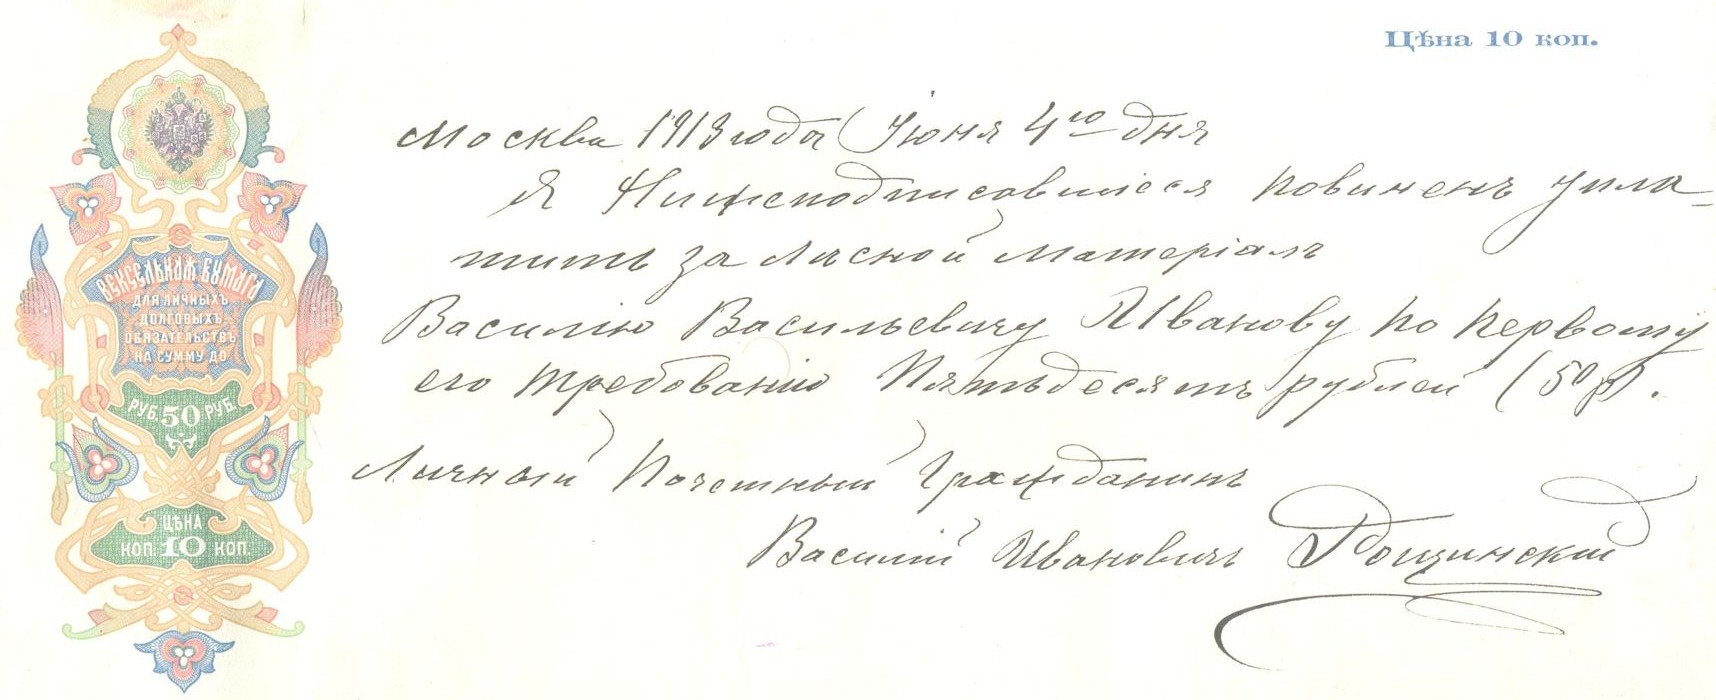 Цѣна 10 коп.
ВЕКСЕЛЬНАЯ БУМАГА
ДЛЯ ЛИЧНЫХЪ
ДОЛГОВЫХЪ
ОБЯЗАТЕЛЬСТВЪ
НА СУММУ ДО
РУБ. 50 РУБ.
ЦѢНА
КОП. 10 КОП.
Москва 1913 года Іюня 4го дня
Я Нижеподписавшіеся повиненъ упла-
тить за лѣсной матеріалъ
Василію Васильевичу Иванову по первому
его требованію Пятьдесятъ рублей (50 р).
Личный Почетный Гражданинъ
Василій Ивановичъ Рощинскій